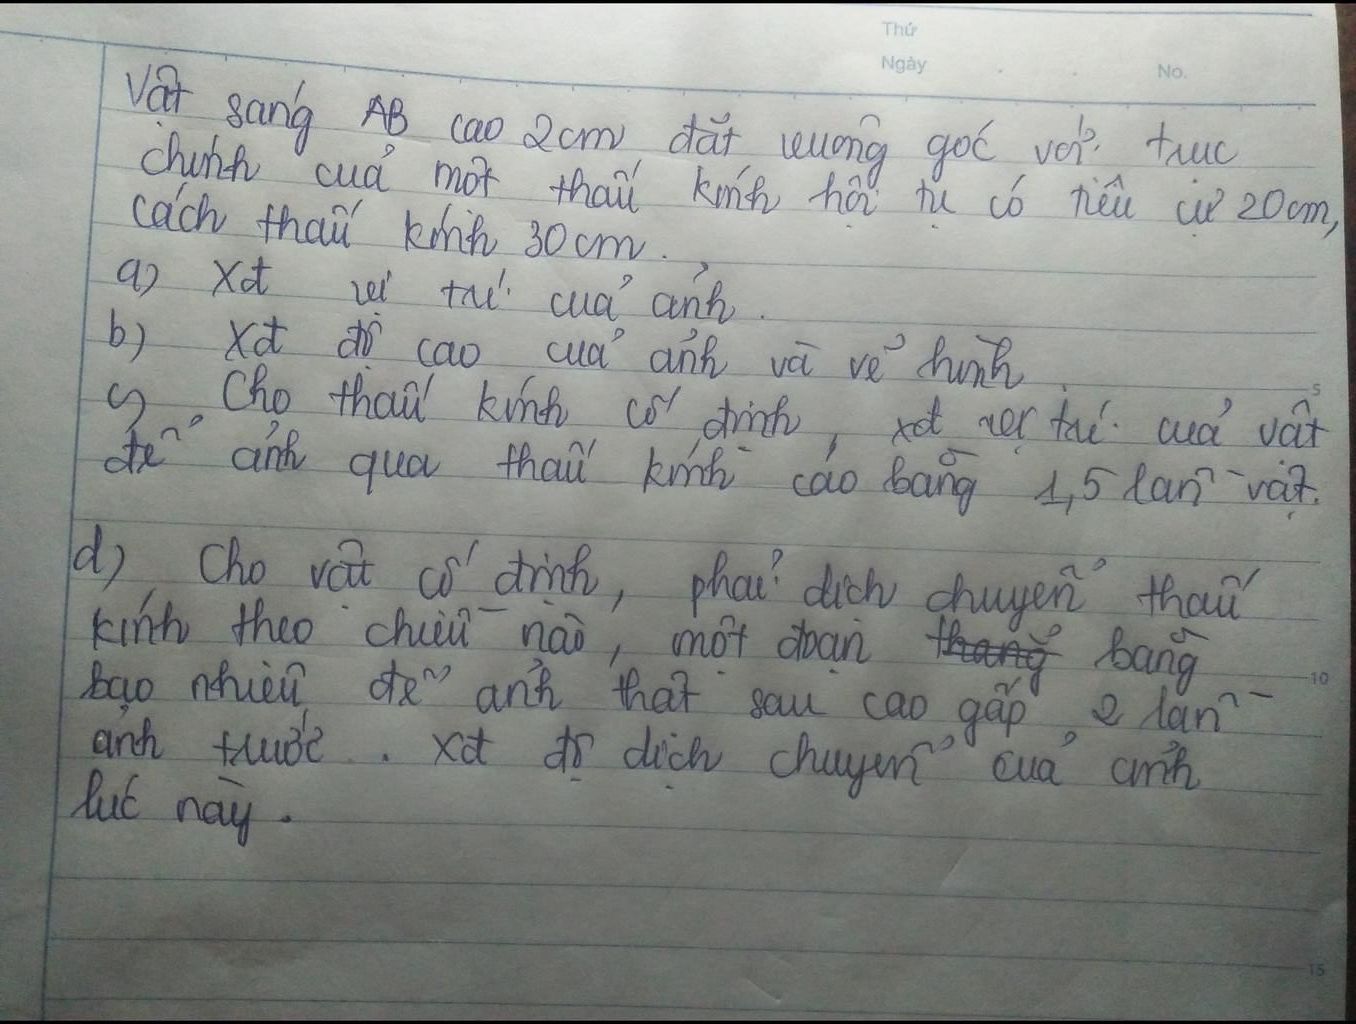 Thứ
Ngày
No.
Vật sáng AB cao 2cm đặt vuông góc với trục
chính của một thấu kính hội tụ có tiêu cự 20cm,
cách thấu kính 30cm.
a) Xđ vị trí của ảnh.
b) Xđ độ cao của ảnh và vẽ hình.
5
c) Cho thấu kính cố định, xđ vị trí của vật
để ảnh qua thấu kính cao bằng 1,5 lần vật.
d) Cho vật cố định, phải dịch chuyển thấu
kính theo chiều nào, một đoạn thẳng bằng
10
bao nhiêu để ảnh thật sau cao gấp 2 lần
ảnh trước. Xđ độ dịch chuyển của ảnh
lúc này.
15